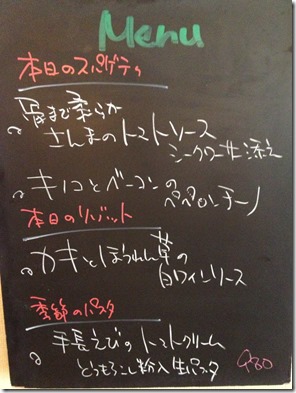 Menu
本日のスパゲティ
骨まで柔らか
さんまのトマトソース
シークワーサー添え
キノコとベーコンの
ペペロンチーノ
本日のリゾット
カキとほうれん草の
白ワインソース
季節のパスタ
手長えびのトマトクリーム
とうもろこし粉入生パスタ
980